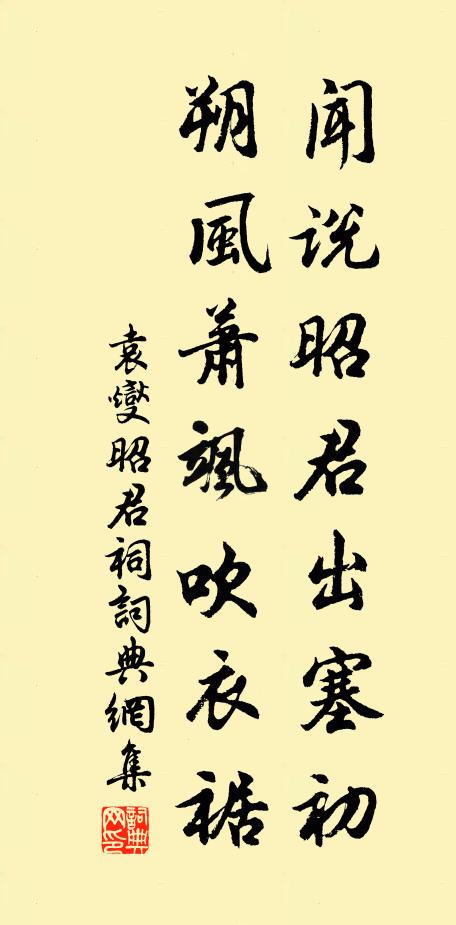 闻说昭君出塞初
朔風蕭颯吹衣裾
袁燮昭君祠詞典網集
詞典网印